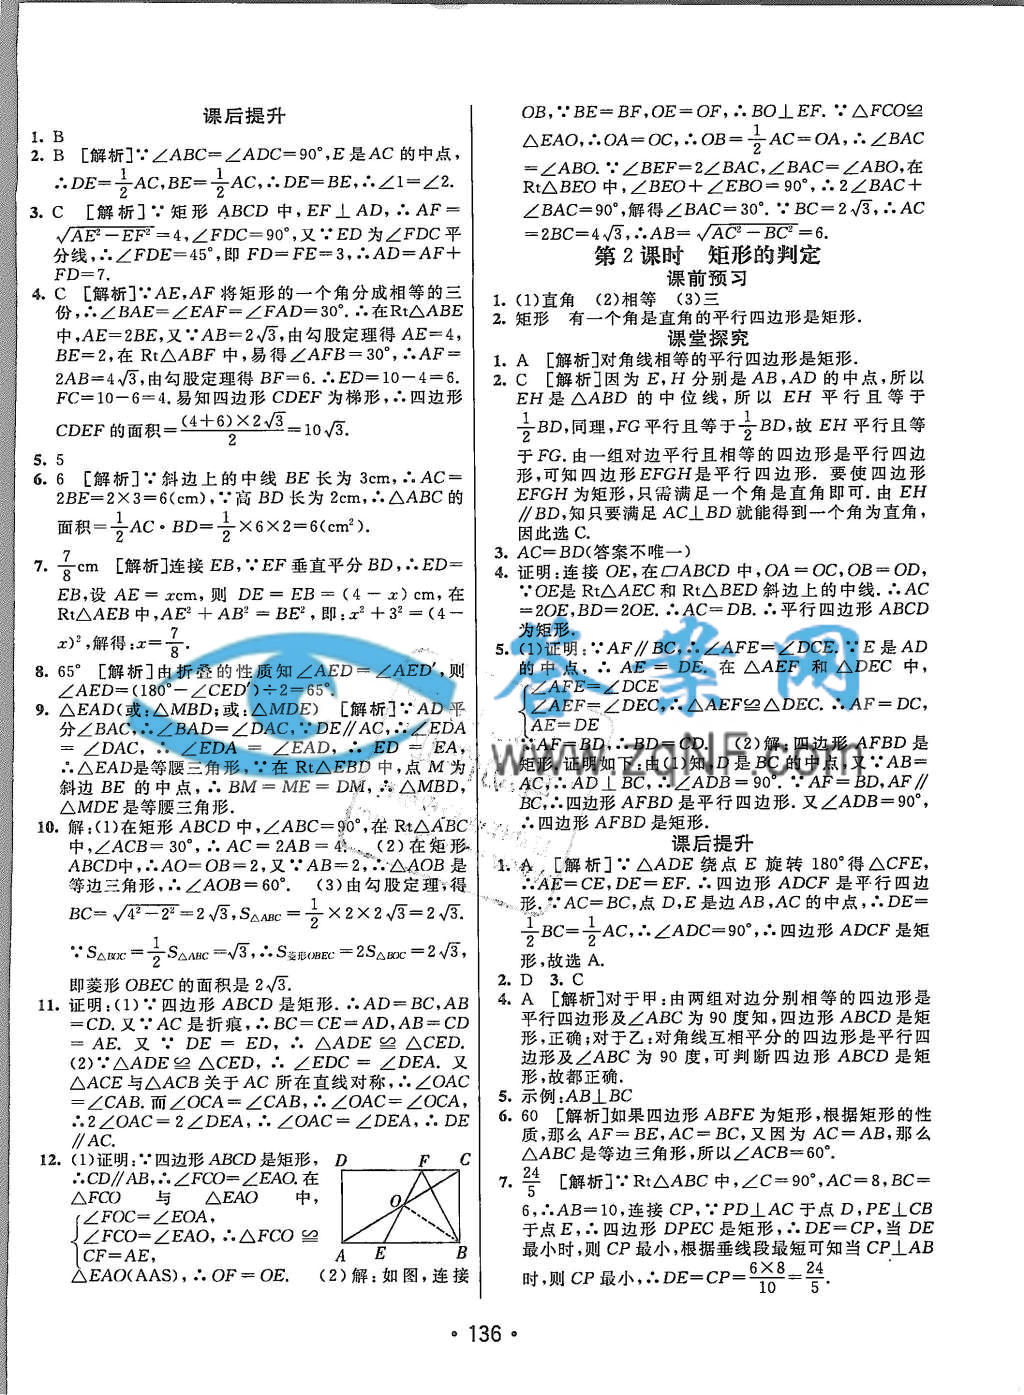 课后提升
1. B
2. B [解析]∵∠ABC=∠ADC=90°,E是AC的中点,
∴DE=1/2AC,BE=1/2AC,∴DE=BE,∴∠1=∠2.
3. C [解析]∵矩形ABCD中,EF⊥AD,∴AF=
√(AE²-EF²)=4,∠FDC=90°,又∵ED为∠FDC平
分线,∴∠FDE=45°,即FD=FE=3,∴AD=AF+
FD=7.
4. C [解析]∵AE,AF将矩形的一个角分成相等的三
份,∴∠BAE=∠EAF=∠FAD=30°.∴在Rt△ABE
中,AE=2BE,又∵AB=2√3,由勾股定理得AE=4,
BE=2,在Rt△ABF中,易得∠AFB=30°,∴AF=
2AB=4√3,由勾股定理得BF=6.∴ED=10-4=6.
FC=10-6=4.易知四边形CDEF为梯形,∴四边形
CDEF的面积=(4+6)×2√3/2=10√3.
5. 5
6. 6 [解析]∵斜边上的中线BE长为3cm,∴AC=
2BE=2×3=6(cm),∵高BD长为2cm,∴△ABC的
面积=1/2AC·BD=1/2×6×2=6(cm²).
7. 7/8cm [解析]连接EB,∵EF垂直平分BD,∴ED=
EB,设AE=xcm,则DE=EB=(4-x)cm,在
Rt△AEB中,AE²+AB²=BE²,即:x²+3²=(4-
x)²,解得:x=7/8.
8. 65° [解析]由折叠的性质知∠AED=∠AED′,则
∠AED=(180°-∠CED′)÷2=65°.
9. △EAD(或:△MBD;或:△MDE) [解析]∵AD平
分∠BAC,∴∠BAD=∠DAC,∵DE∥AC,∴∠EDA
=∠DAC,∴∠EDA=∠EAD,∴ED=EA,
∴△EAD是等腰三角形,∵在Rt△EBD中,点M为
斜边BE的中点,∴BM=ME=DM,∴△MBD,
△MDE是等腰三角形.
10. 解:(1)在矩形ABCD中,∠ABC=90°,在Rt△ABC
中,∠ACB=30°,∴AC=2AB=4. (2)在矩形
ABCD中,∴AO=OB=2,又∵AB=2,∴△AOB是
等边三角形,∴∠AOB=60°. (3)由勾股定理,得
BC=√(4²-2²)=2√3,S△ABC=1/2×2×2√3=2√3.
∵S△BOC=1/2S△ABC=√3,∴S菱形OBEC=2S△BOC=2√3,
即菱形OBEC的面积是2√3.
11. 证明:(1)∵四边形ABCD是矩形.∴AD=BC,AB
=CD.又∵AC是折痕,∴BC=CE=AD,AB=CD
=AE.又∵DE=ED,∴△ADE≌△CED.
(2)∵△ADE≌△CED,∴∠EDC=∠DEA.又
△ACE与△ACB关于AC所在直线对称,∴∠OAC
=∠CAB.而∠OCA=∠CAB,∴∠OAC=∠OCA,
∴2∠OAC=2∠DEA,∴∠OAC=∠DEA,∴DE
∥AC.
12. (1)证明:∵四边形ABCD是矩形,
∴CD∥AB,∴∠FCO=∠EAO.在
△FCO与△EAO中,
{∠FOC=∠EOA,
∠FCO=∠EAO,∴△FCO≌
CF=AE,
△EAO(AAS),∴OF=OE. (2)解:如图,连接
D F C
O
A E B
OB,∵BE=BF,OE=OF,∴BO⊥EF.∵△FCO≌
△EAO,∴OA=OC,∴OB=1/2AC=OA,∴∠BAC
=∠ABO.∵∠BEF=2∠BAC,∠BAC=∠ABO,在
Rt△BEO中,∠BEO+∠EBO=90°,∴2∠BAC+
∠BAC=90°,解得∠BAC=30°.∵BC=2√3,∴AC
=2BC=4√3,∴AB=√(AC²-BC²)=6.
第2课时 矩形的判定
课前预习
1. (1)直角 (2)相等 (3)三
2. 矩形 有一个角是直角的平行四边形是矩形.
课堂探究
1. A [解析]对角线相等的平行四边形是矩形.
2. C [解析]因为E,H分别是AB,AD的中点,所以
EH是△ABD的中位线,所以EH平行且等于
1/2BD,同理,FG平行且等于1/2BD,故EH平行且等
于FG.由一组对边平行且相等的四边形是平行四边
形,可知四边形EFGH是平行四边形.要使四边形
EFGH为矩形,只需满足一个角是直角即可.由EH
∥BD,知只要满足AC⊥BD就能得到一个角为直角,
因此选C.
3. AC=BD(答案不唯一)
4. 证明:连接OE,在▱ABCD中,OA=OC,OB=OD,
∵OE是Rt△AEC和Rt△BED斜边上的中线.∴AC
=2OE,BD=2OE.∴AC=DB.∴平行四边形ABCD
为矩形.
5. (1)证明:∵AF∥BC,∴∠AFE=∠DCE.∵E是AD
的中点,∴AE=DE,在△AEF和△DEC中,
{∠AFE=∠DCE
∠AEF=∠DEC,∴△AEF≌△DEC.∴AF=DC,
AE=DE
∵AF=BD,∴BD=CD. (2)解:四边形AFBD是
矩形.证明如下:由(1)知D是BC的中点,又∵AB=
AC,∴AD⊥BC,∴∠ADB=90°.∵AF=BD,AF∥
BC,∴四边形AFBD是平行四边形.又∠ADB=90°,
∴四边形AFBD是矩形.
课后提升
1. A [解析]∵△ADE绕点E旋转180°得△CFE,
∴AE=CE,DE=EF.∴四边形ADCF是平行四边
形.∵AC=BC,点D,E是边AB,AC的中点,∴DE=
1/2BC=1/2AC,∴∠ADC=90°,∴四边形ADCF是矩
形,故选A.
2. D 3. C
4. A [解析]对于甲:由两组对边分别相等的四边形是
平行四边形及∠ABC为90度知,四边形ABCD是矩
形,正确;对于乙:对角线互相平分的四边形是平行四
边形及∠ABC为90度,可判断四边形ABCD是矩
形,故都正确.
5. 示例:AB⊥BC
6. 60 [解析]如果四边形ABFE为矩形,根据矩形的性
质,那么AF=BE,AC=BC,又因为AC=AB,那么
△ABC是等边三角形,所以∠ACB=60°.
7. 24/5 [解析]∵Rt△ABC中,∠C=90°,AC=8,BC=
6,∴AB=10,连接CP,∵PD⊥AC于点D,PE⊥CB
于点E,∴四边形DPEC是矩形,∴DE=CP,当DE
最小时,则CP最小,根据垂线段最短可知当CP⊥AB
时,则CP最小,∴DE=CP=6×8/10=24/5.
答案网
www.zqNF.com
·136·